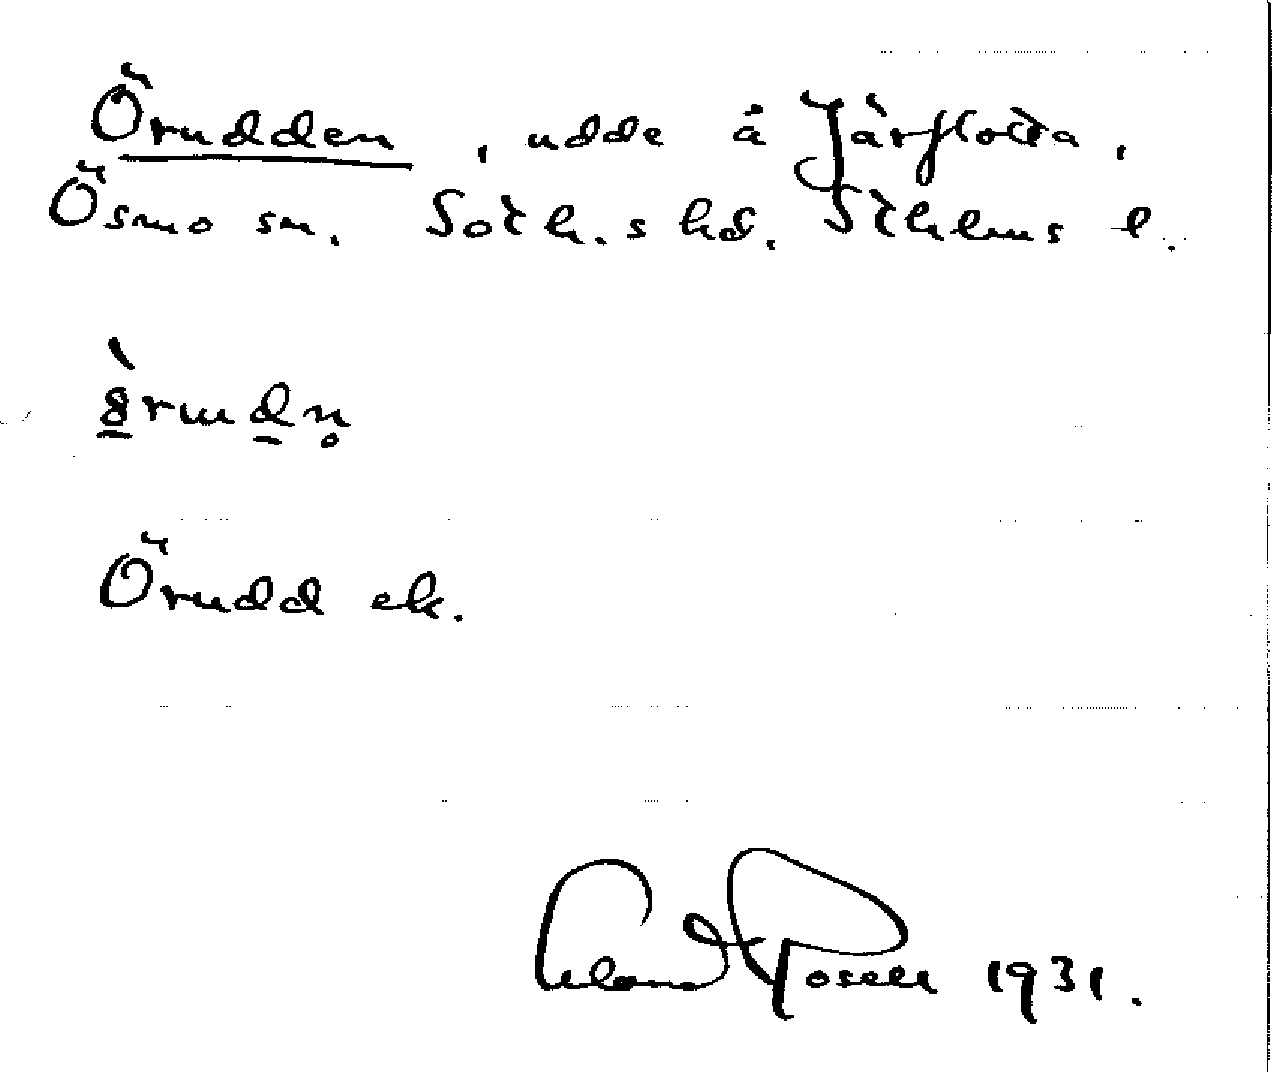 Örudden, udde å Järflotta,
Ösmo sn. Soth.s hd. Sthlms l.
Örudd ek.
Erland Rosell 1931.